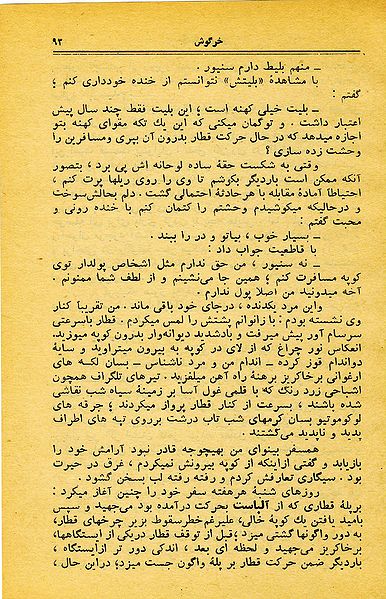 خرگوش ۹۳
ـ منهم بلیط دارم سنیور .
با مشاهدهٔ «بلیتش» نتوانستم از خنده خودداری کنم ؛
گفتم :
ـ بلیت خیلی کهنه است ؛ این بلیت فقط چند سال پیش
اعتبار داشت . و توگمان میکنی که این یك تکه مقوای کهنه بتو
اجازه میدهد که در حال حرکت قطار بدرون آن بپری ومسافرین را
وحشت زده سازی ؟
وقتی به شکست حقهٔ ساده لوحانه اش پی برد ، بتصور
آنکه ممکن است باردیگر بکوشم تا وی را روی ریلها پرت کنم ،
احتیاطاً آمادهٔ مقابله با هرحادثهٔ احتمالی گشت . دلم بحالش‌سوخت
و درحالیکه میکوشیدم وحشتم را کتمان کنم با خنده روئی و
محبت گفتم :
ـ بسیار خوب ، بیاتو و در را ببند .
با قاطعیت جواب داد :
ـ نه سنیور ، من حق ندارم مثل اشخاص پولدار توی
کوپه مسافرت کنم ؛ همین جا می‌نشینم و از لطف شما ممنونم .
آخه میدونید من اصلا پول ندارم .
واین مرد یکدنده ، درجای خود باقی ماند . من تقریباً کنار
وی نشسته بودم ؛ با زانوانم پشتش را لمس میکردم . قطار باسرعتی
سرسام آور پیش میرفت و بادشدید دیوانه‌وار بدرون کوپه میوزید.
انعکاس نور چراغ که از لای در کوپه به بیرون میتراوید و سایهٔ
دواندام قوز کرده ـ اندام من و مرد ناشناس ـ بسان لکه های
ارغوانی برخاکریز برهنهٔ راه آهن میلغزید . تیرهای تلگراف همچون
اشباحی زرد رنگ که با قلمی غول آسا بر زمینهٔ سیاه شب نقاشی
شده باشند ، بسرعت از کنار قطار پرواز میکردند ؛ جرقه های
لوکوموتیو بسان کرمهای شب تاب درشت برروی تپه های اطراف
پدید و ناپدید می‌گشتند .
همسفر بینوای من بهیچوجه قادر نبود آرامش خود را
بازیابد و گفتی ازاینکه از کوپه بیرونش نمیکردم ، غرق در حیرت
بود . سیگاری تعارفش کردم و رفته رفته لب بسخن گشود .
روزهای شنبهٔ هرهفته سفر خود را چنین آغاز میکرد :
برپلهٔ قطاری که از آلباست بحرکت درآمده بود می‌جهید و سپس
بامید یافتن یك کوپهٔ خالی، علیرغم‌خطرسقوط بزیر چرخهای قطار،
به دور واگونها گشتی میزد ؛قبل از توقف قطار دریکی از ایستگاهها،
برخاکریز می‌جهید و لحظه ای بعد ، اندکی دور تر ازایستگاه ،
باردیگر ضمن حرکت قطار بر پلهٔ واگون جست میزد؛ دراین حال ،